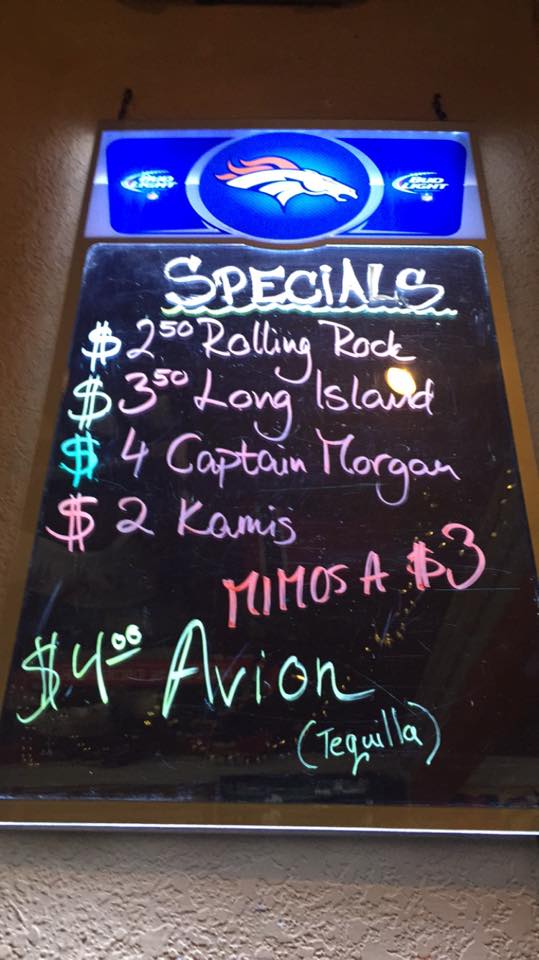 BUD LIGHT
BUD LIGHT
SPECiALS
$2.50 Rolling Rock
$3.50 Long Island
$ 4 Captain Morgan
$ 2 Kamis
MIMOSA $3
$4.00 Avion
(Tequilla)